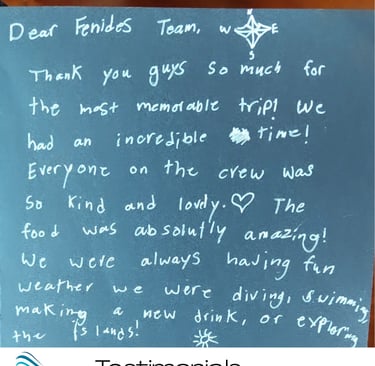 Dear Fenides Team, W E
S
Thank you guys so much for
the most memorable trip! We
had an incredible time!
Everyone on the crew was
so kind and lovely. ♡ The
food was absolutly amazing!
We were always having fun
weather we were diving, swimming,
making a new drink, or exploring
the islands!
Testimonials